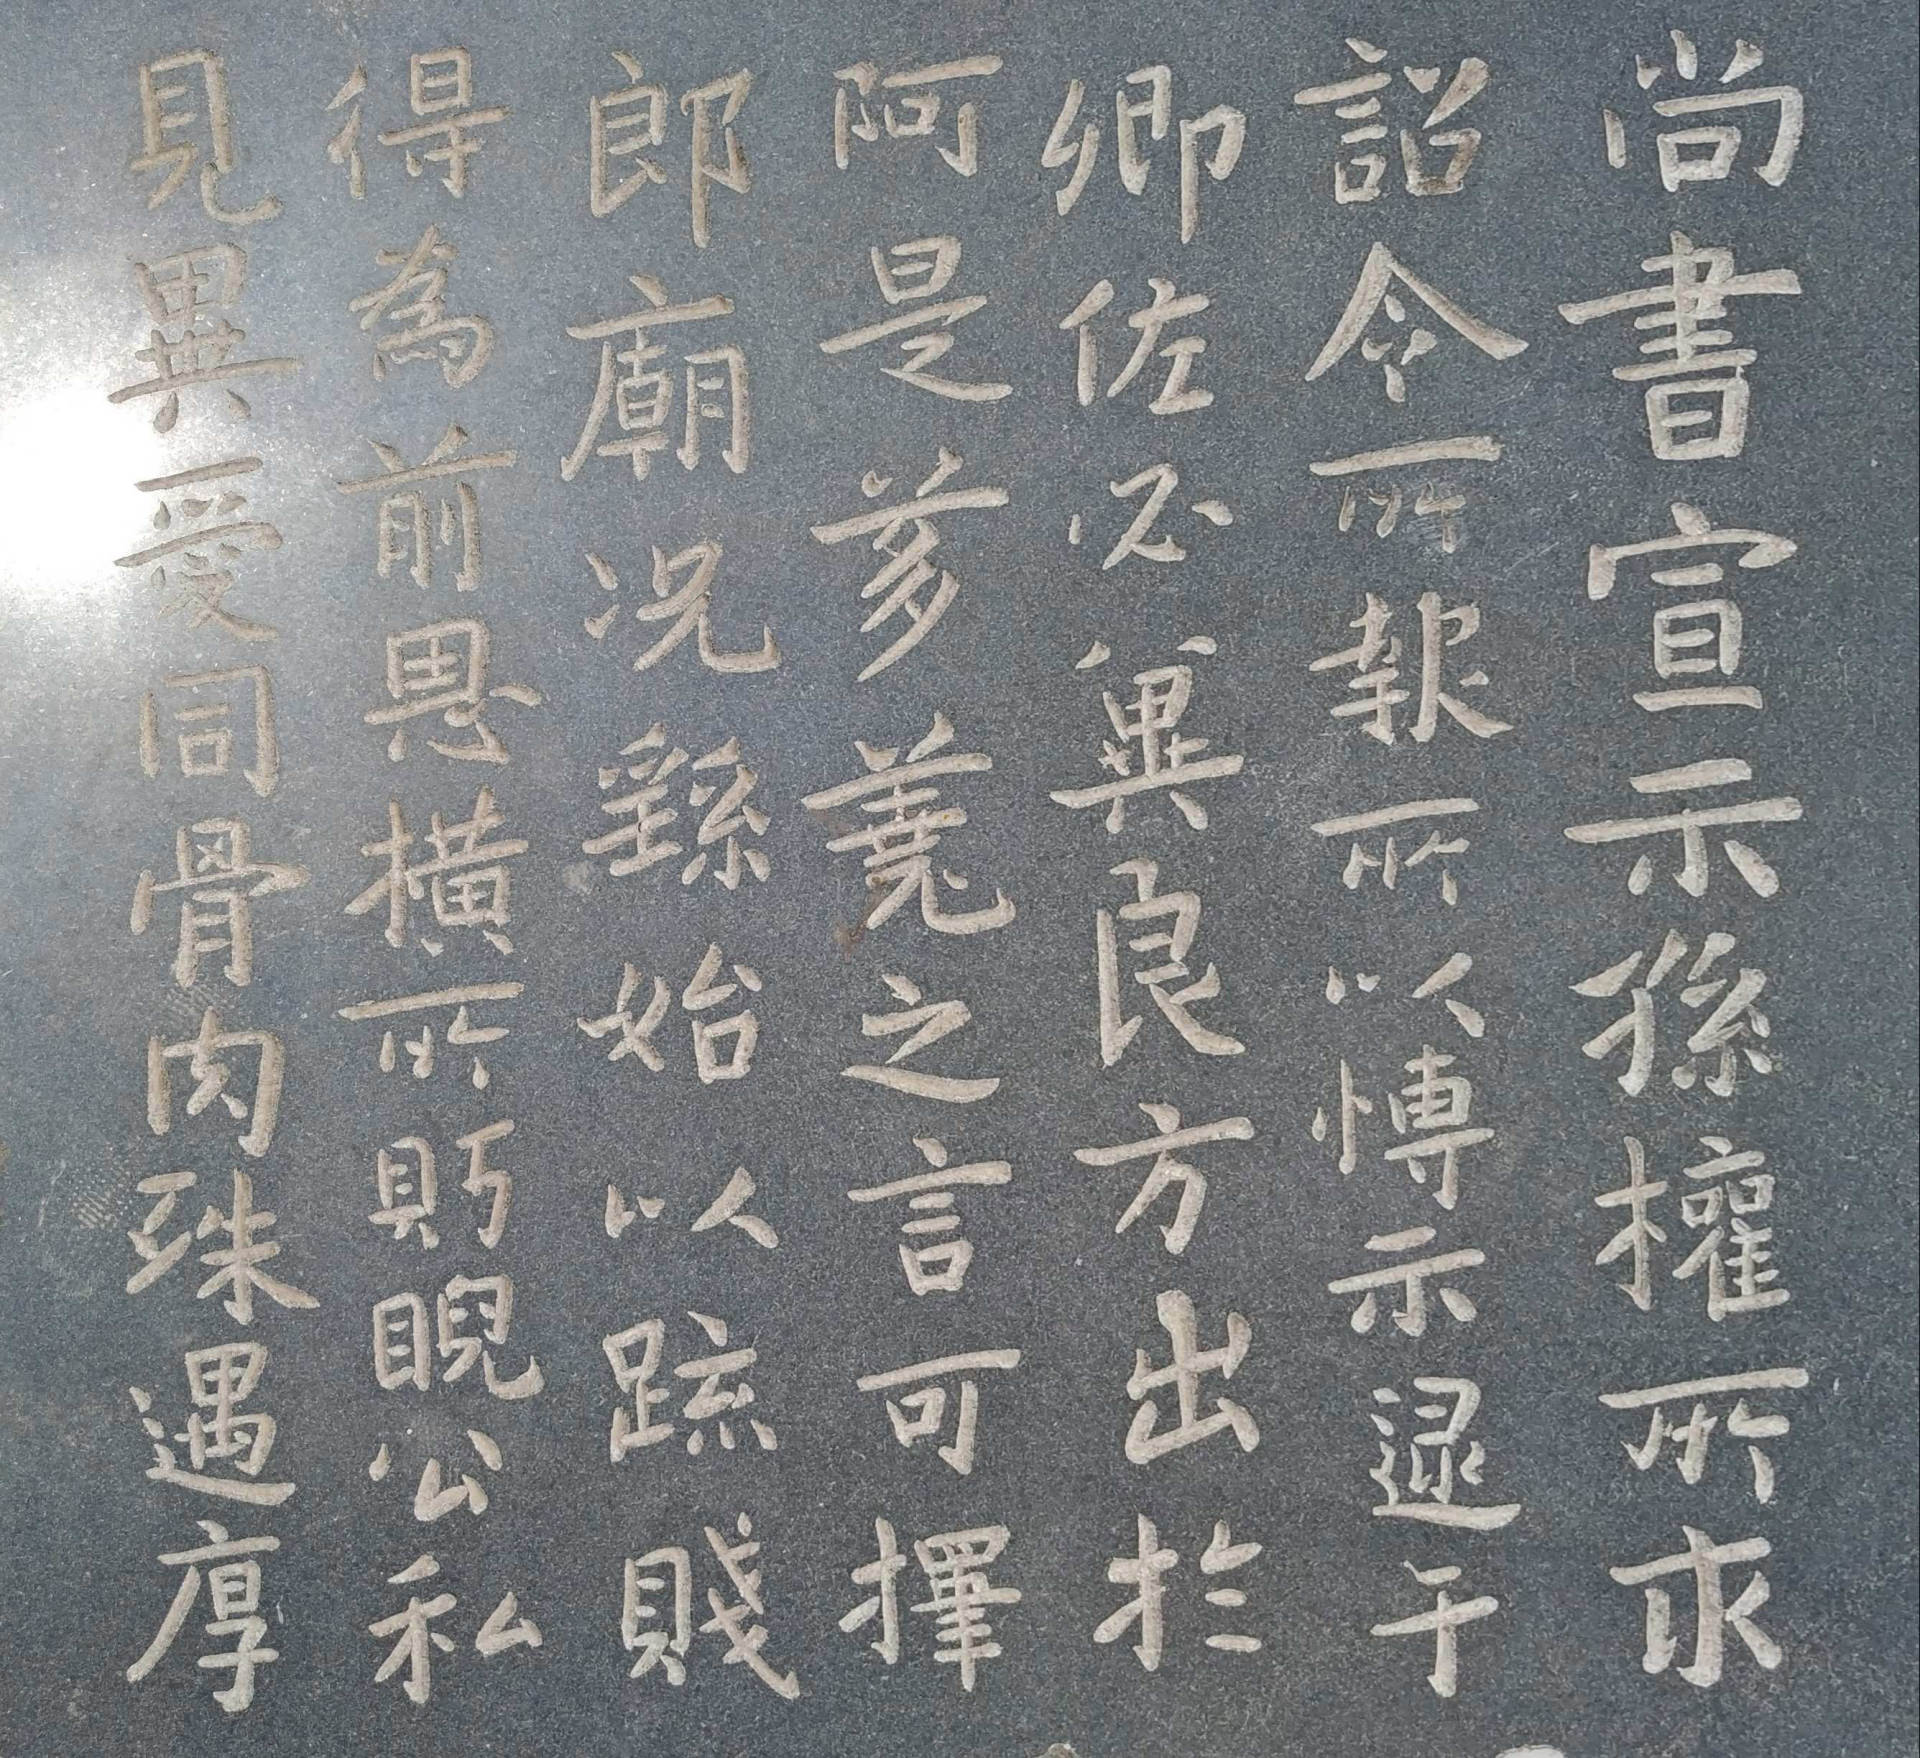 尚書宣示孫權所求
詔令所報所以博示逮于
卿佐必冀良方出於
阿是芻蕘之言可擇
郎廟況繇始以疏賤
得為前恩橫所眄睨公私
見異愛同骨肉殊遇厚